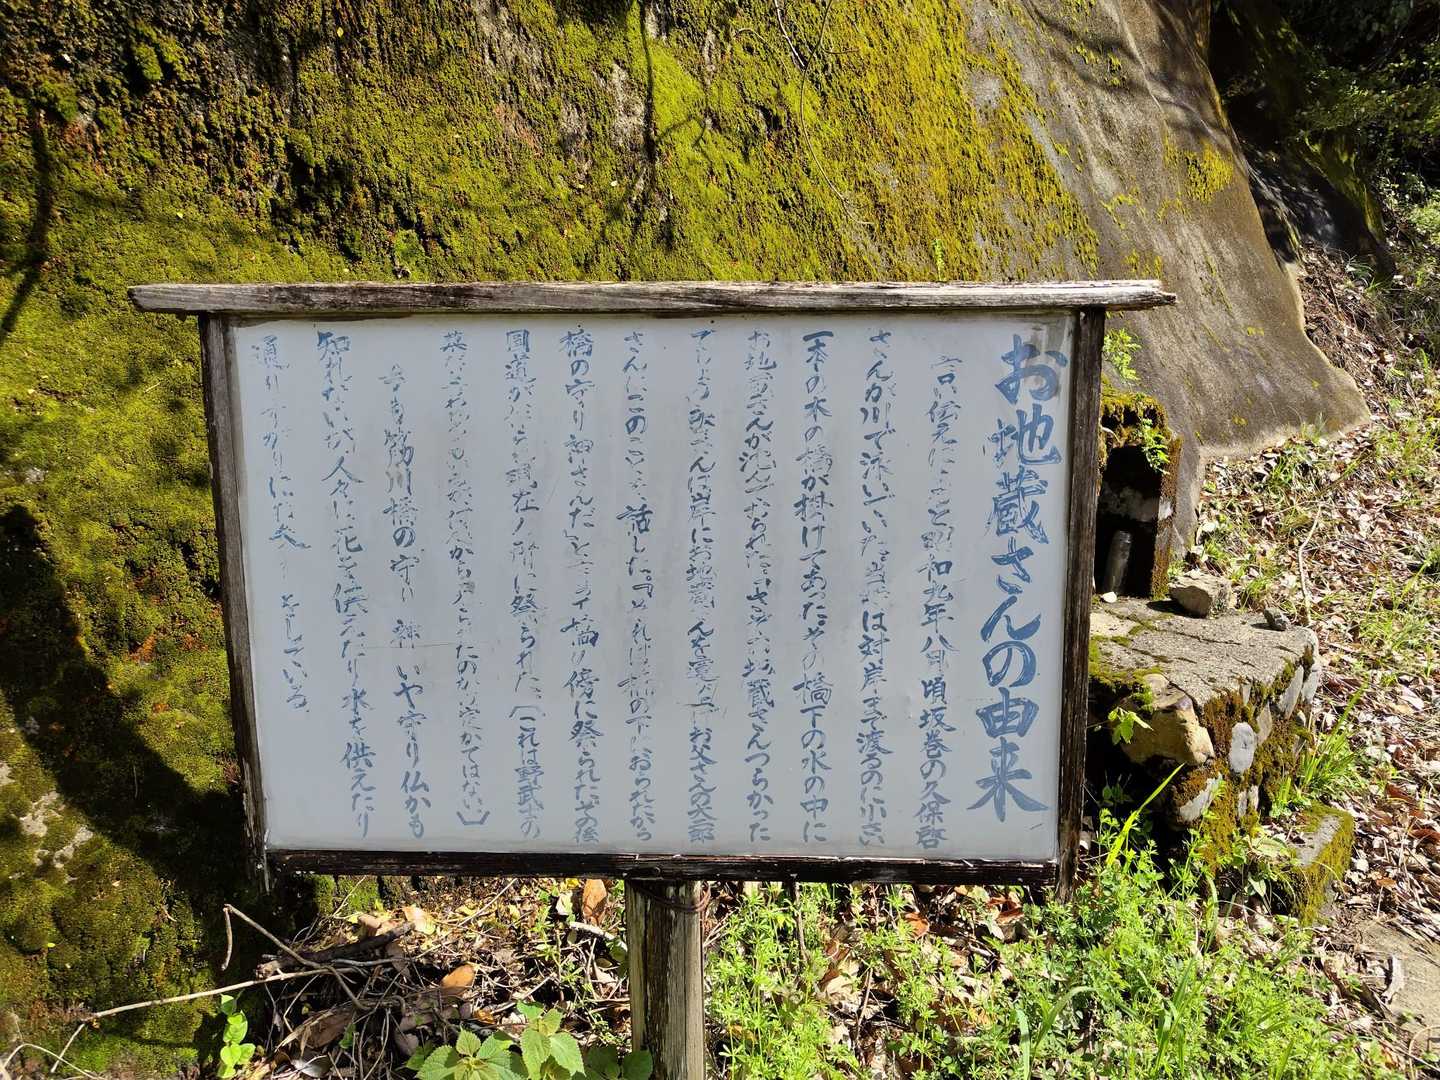 お地蔵さんの由来
言い伝えによると昭和九年八月頃坂巻の久保啓
さんが川で泳いでいた。当時は対岸まで渡るのに小さい
一本の木の橋が掛けてあった。その橋下の水の中に
お地蔵さんが沈んでおられた。さぞお地蔵さんつらかった
でしょう 啓さんは岸にお地蔵さんを お父さんの
さんにこのことを話した。『それは橋の下におられたから
橋の守り神さんだ』と言って橋の傍に祭られた。その後
国道がなり現在の所に祭られた。〔これは野武士の
墓だと か定かではない。〕
今も 川橋の守り神いや守り仏かも
知れないが人々は花を供えたり水を供えたり
通りすがりに をしている。